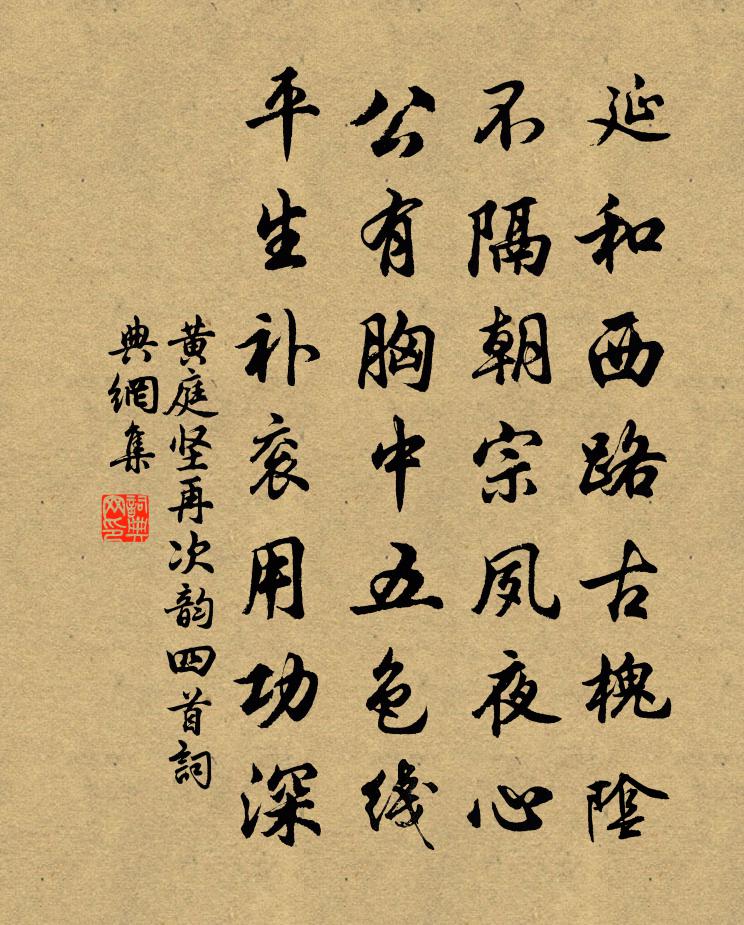 延和西路古槐陰
不隔朝宗夙夜心
公有胸中五色线
平生补衮用功深
黄庭坚再次韵四首詞
典網集
詞典网印